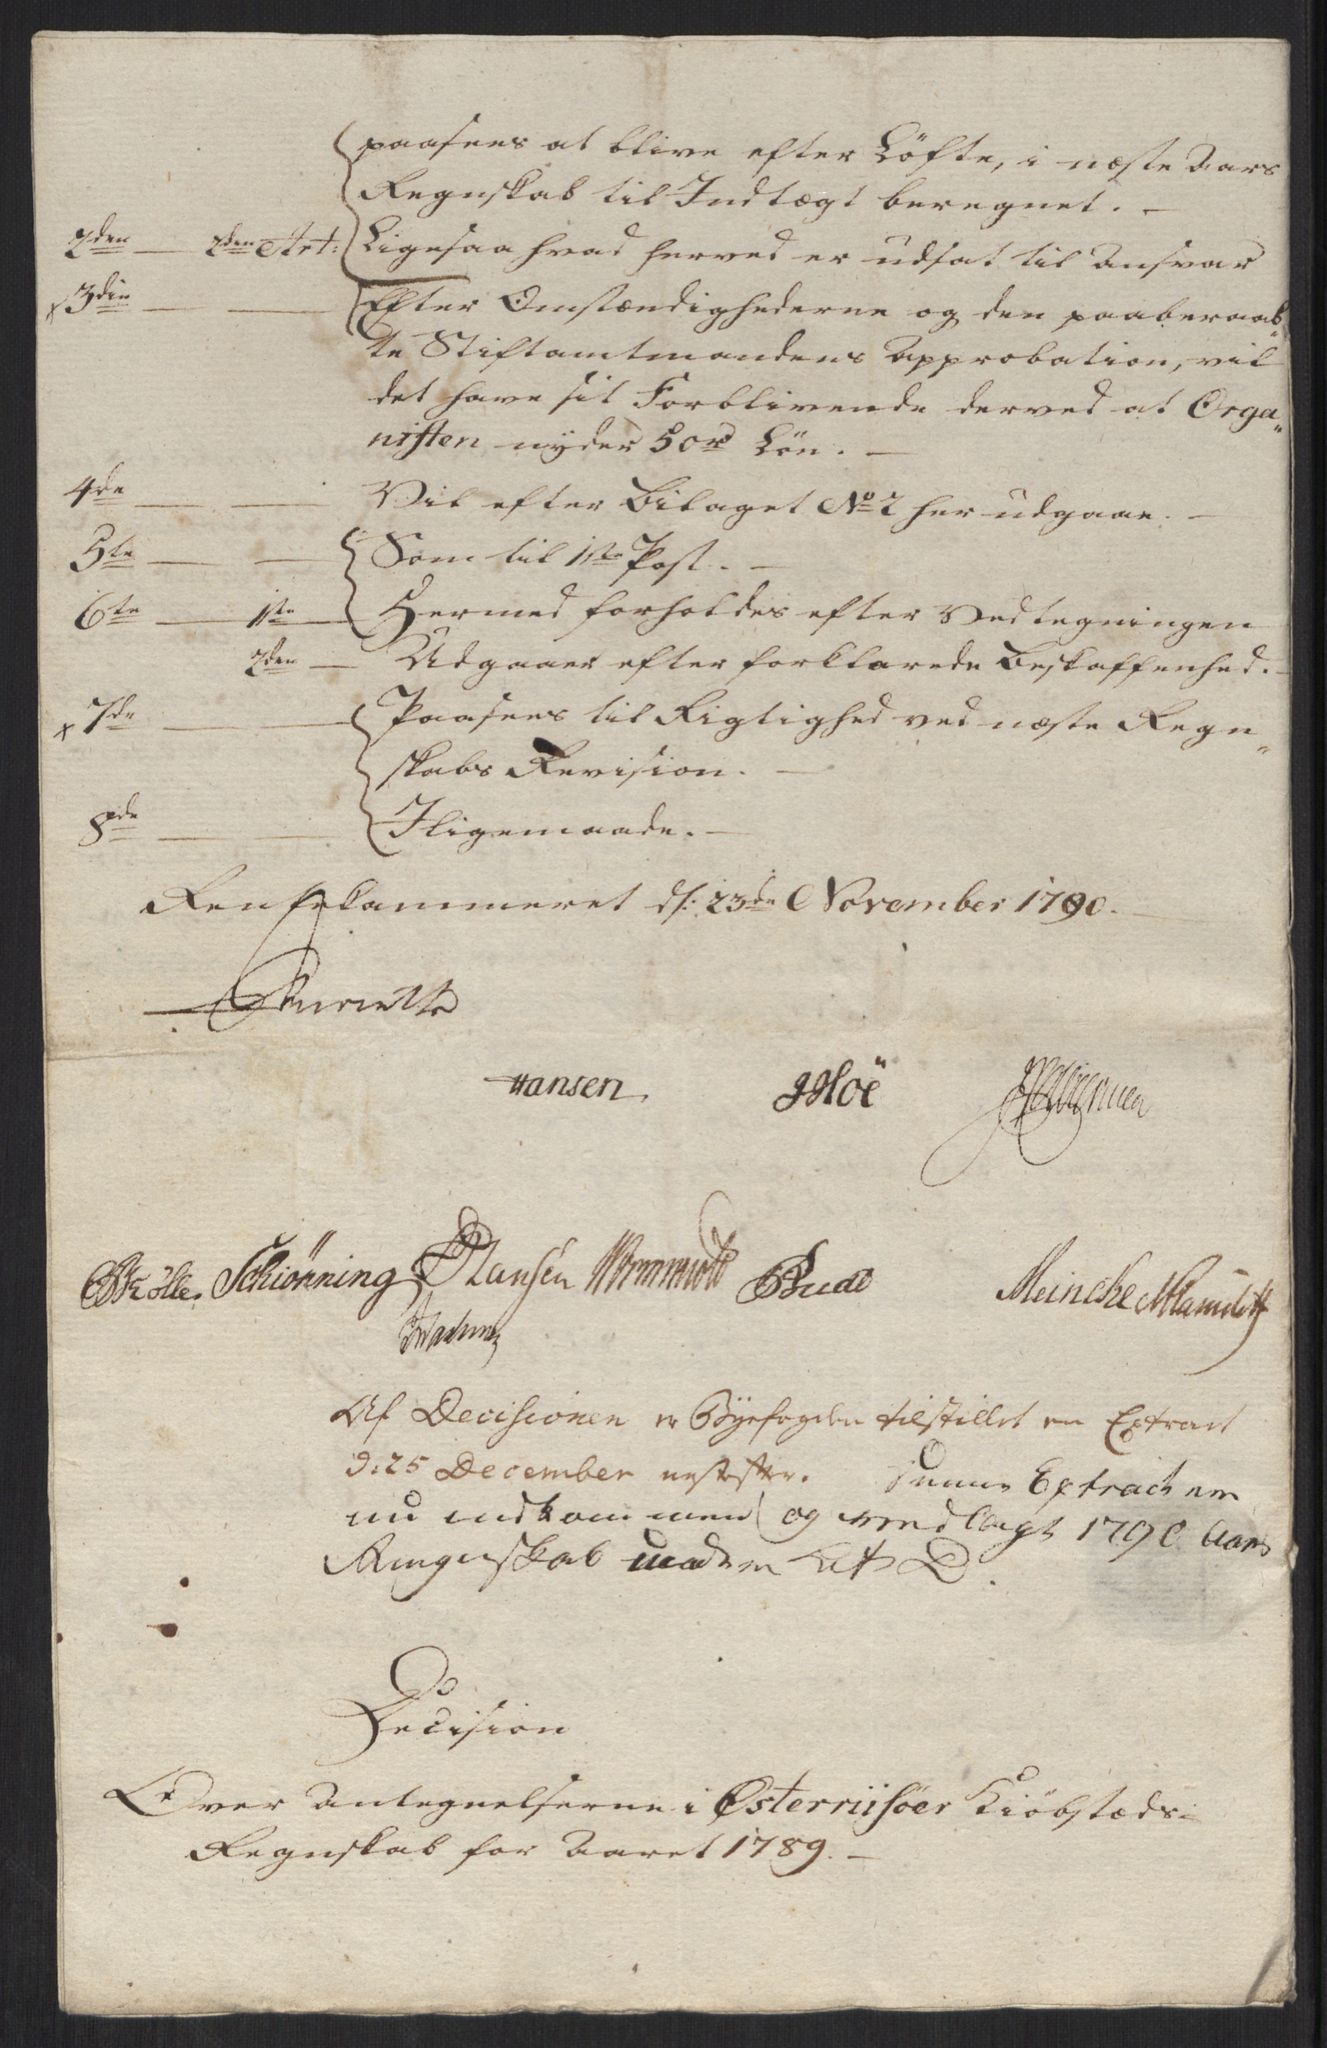 paasees at blive efter Løfte, i næste Aars
Regnskab til Indtægt beregnet. —
2den — 2den Art: Ligesaa hvad herved er udsat til Ansvar
x 3die — — Efter Omstændighederne og den paaberaab„
te Stiftamtmandens Approbation, vil
det have sit Forblivende derved at Orga„
nisten nyder 50rd Løn. —
4de — — Vil efter Bilaget No 2 her udgaae. —
5te — — Som til 1ste Post. —
6te — 1ste — Hermed forholdes efter Vedtegningen
2den — Udgaaer efter forklarede Beskaffenhed. —
x 7de — — Paasees til Rigtighed ved næste Regn„
skabs Revision. —
8de — — Iligemaade. —
Rentekammeret d: 23de November 1790. —
Hansen. Hoë
Schiönning Hansen Bude Meincke
Af Decisionen er Byefogden tilstillet en Extract
d: 25 December nestefter. Denne Extract er
nu indkommen og vedlagt 1790 Aars
Regnskab under Lit D.
Decision
Over Antegnelserne i Østerriisöer Kiöbstæds-
Regnskab for Aaret 1789. —